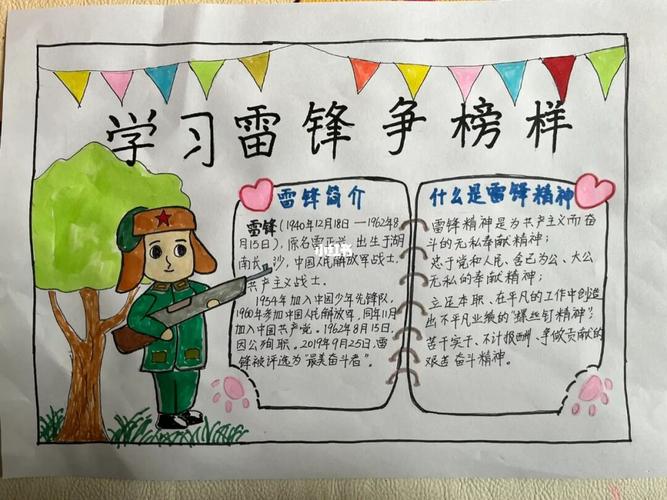 学习雷锋争榜样
雷锋简介
雷锋(1940年12月18日—1962年8
月15日),原名雷正兴,出生于湖
南长沙,中国人民解放军战士,
共产主义战士。
1954年加入中国少年先锋队,
1960年参加中国人民解放军,同年11月
加入中国共产党。1962年8月15日,
因公殉职。2019年9月25日,雷
锋被评选为“最美奋斗者”。
什么是雷锋精神
雷锋精神是为共产主义而奋
斗的无私奉献精神;
忠于党和人民、舍己为公、大公
无私的奉献精神;
立足本职、在平凡的工作中创造
出不平凡业绩的“螺丝钉精神”;
苦干实干、不计报酬、争做贡献的
艰苦奋斗精神。
小红书